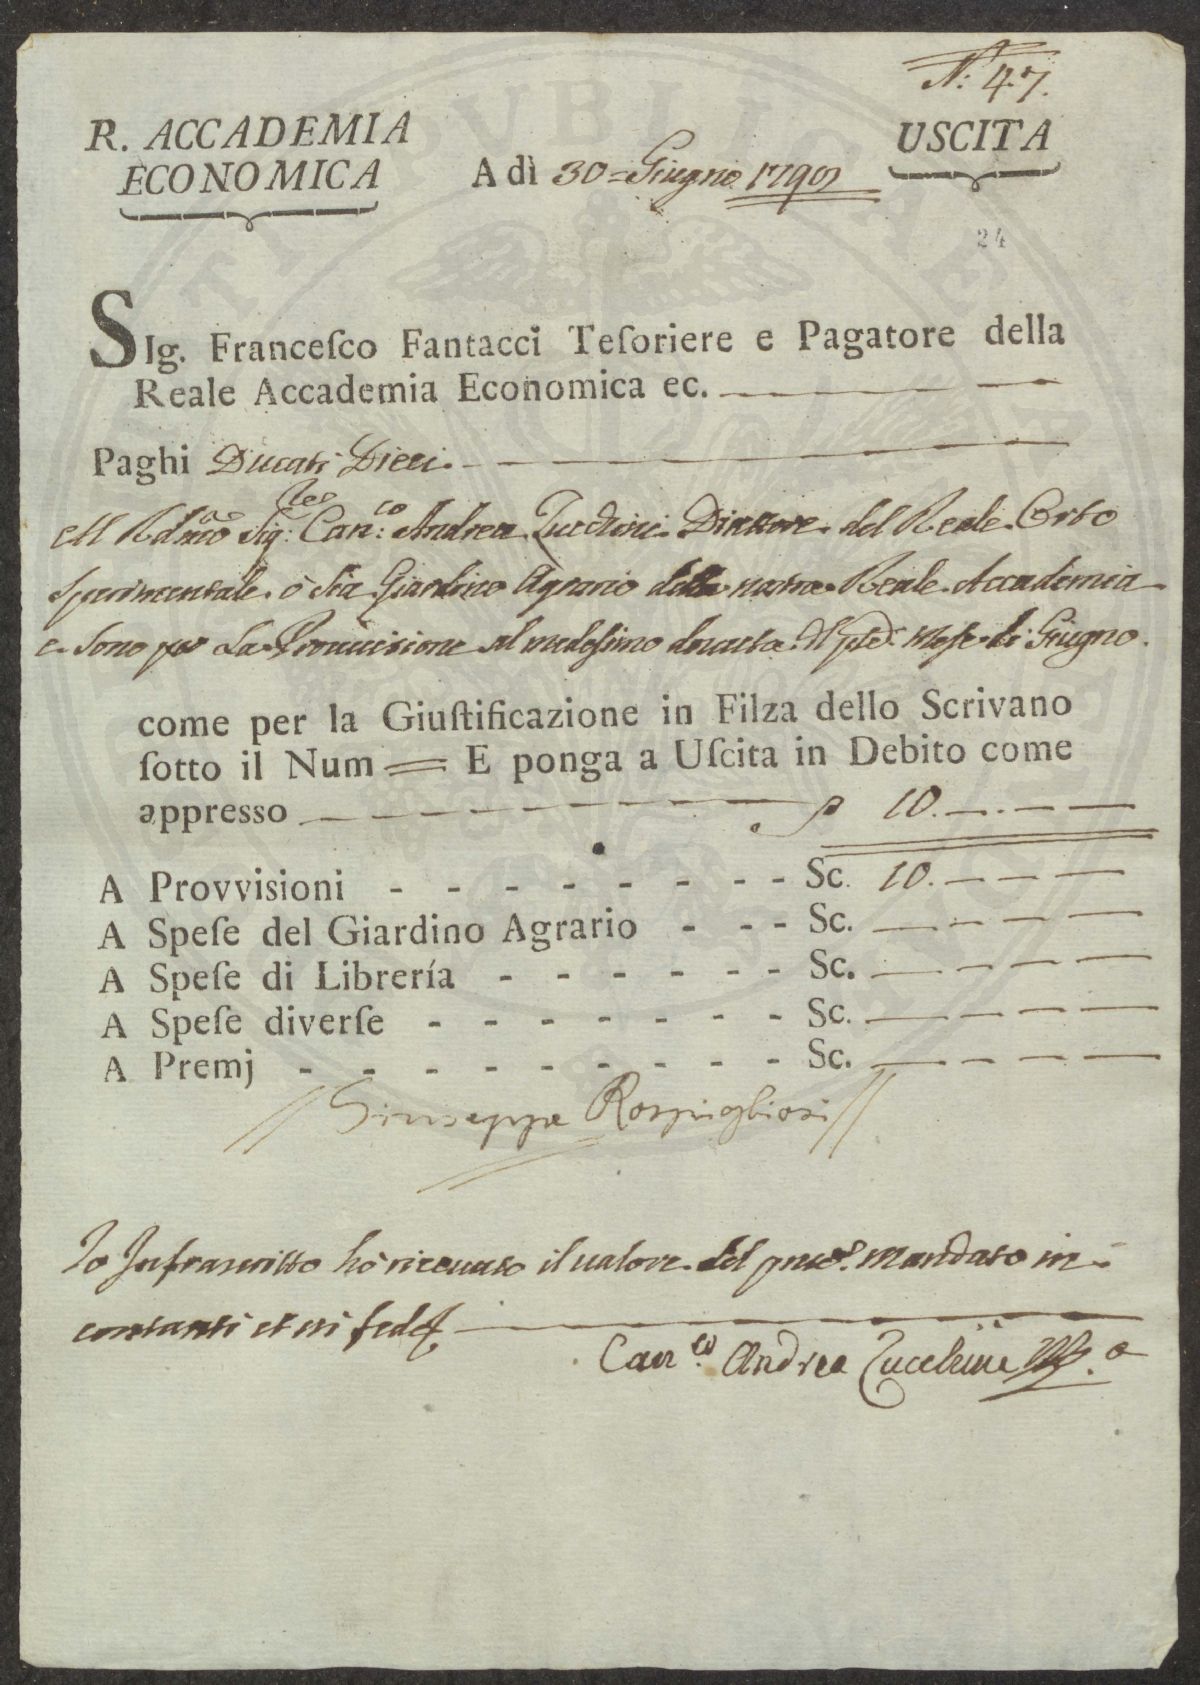 N.: 47.
R. ACCADEMIA
ECONOMICA
A dì 30 = Giugno 1790
USCITA
24
SIg. Franceſco Fantacci Teſoriere e Pagatore della
Reale Accademia Economica ec.
Paghi Ducati Dieci.
Al Rd.mo Sig.re Can.co Andrea Zucchini Direttore del Reale Orto
Sperimentale, ò sia Giardino Agrario della nostra Reale Accademia
e sono per La Provvisione al medesimo dovuta mese di Giugno.
come per la Giuſtificazione in Filza dello Scrivano
ſotto il Num = E ponga a Uſcita in Debito come
appresso 10.
A Provvisioni - - - - - - - - - Sc. 10.
A Speſe del Giardino Agrario - - - Sc.
A Speſe di Librería - - - - - - Sc.
A Speſe diverſe - - - - - - - Sc.
A Premj - - - - - - - - Sc.
Giuseppe Rospigliosi
Io Infrascritto hò ricevuto il valore del pnte. Mandato in
contanti et in fede
Can.co Andrea Zucchini